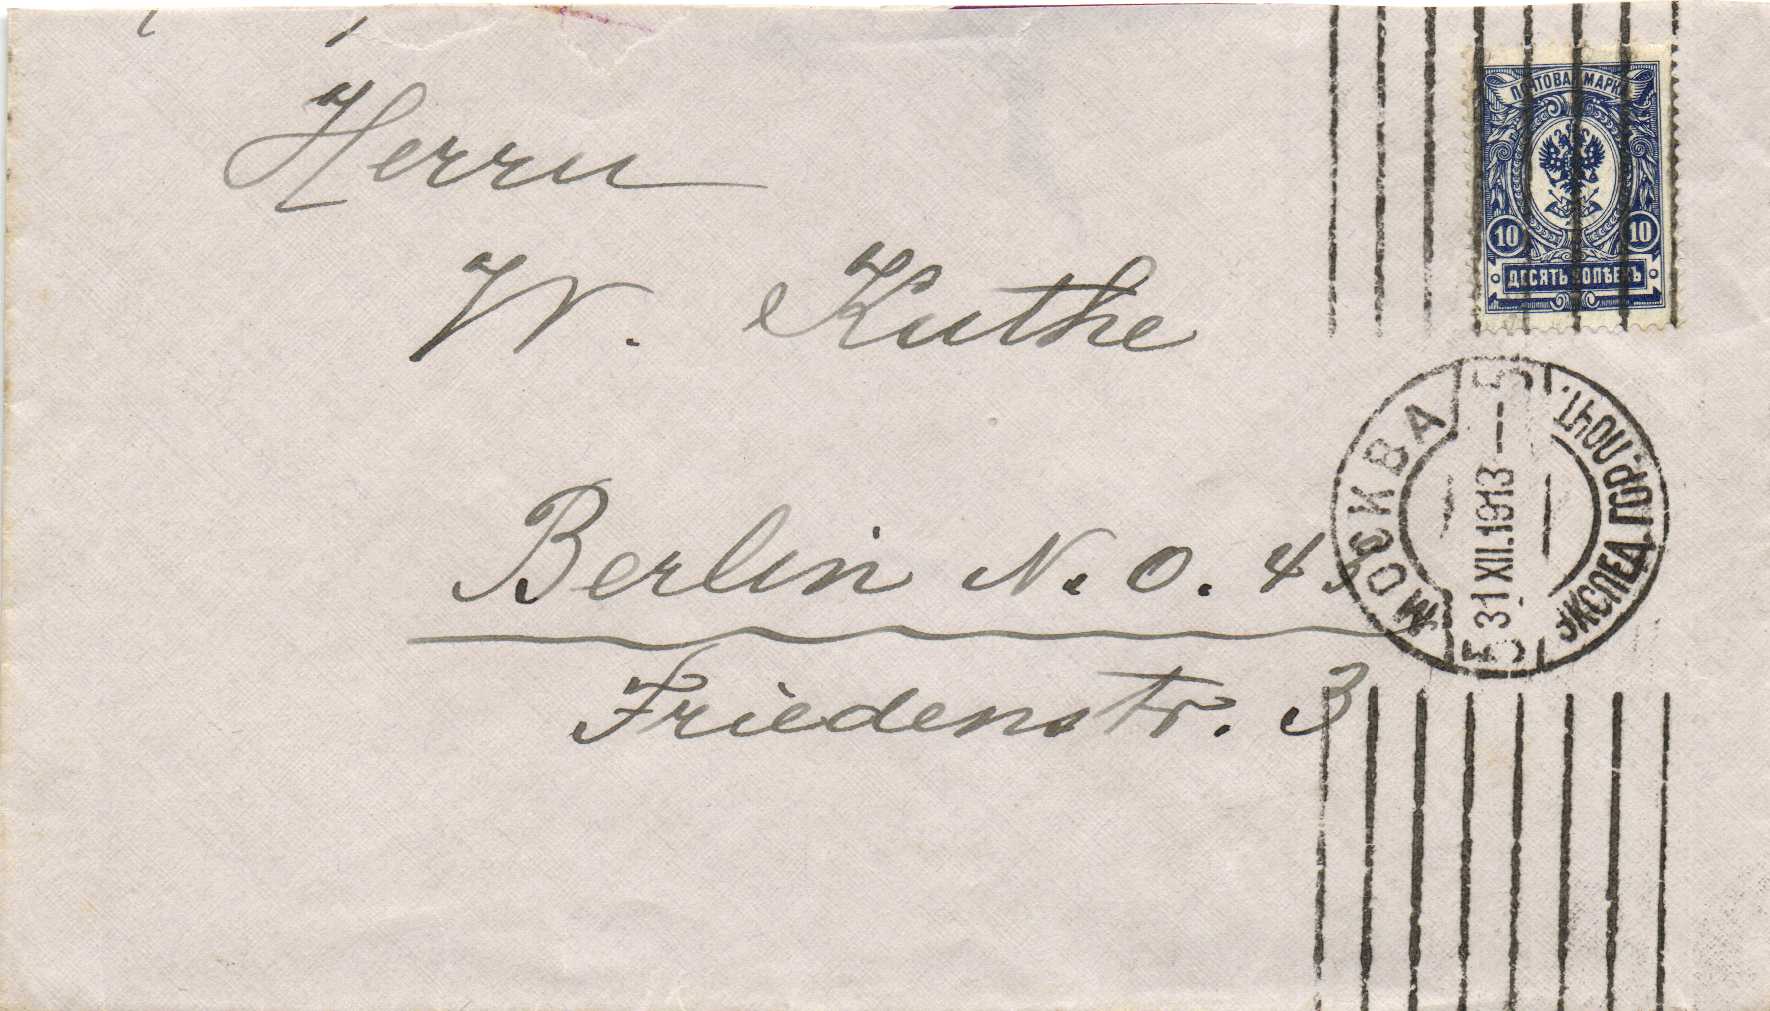 Herrn
W. Kuthe
Berlin N. O. 43
Friedenstr. 3
ПОЧТОВАЯ МАРКА
10 10
ДЕСЯТЬ КОПѢЕКЪ
МОСКВА
31 XII.1913
ЭКСПЕД.ГОР.ПОЧТ.